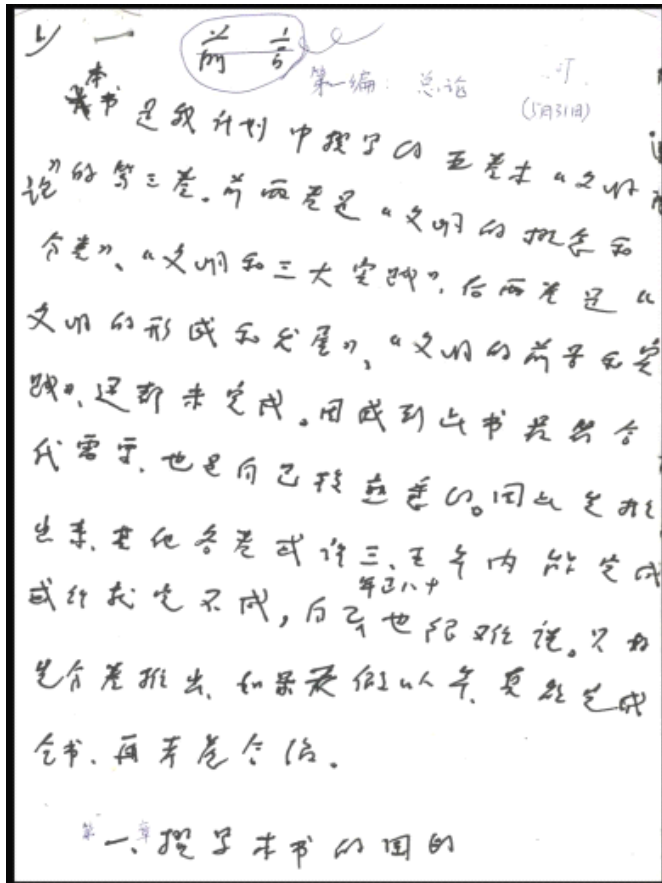 1) 一 前言
第一编：总论 订
(5月31日)
本书是我计划中撰写的五卷本“文明
论”的第三卷。前两卷是“文明的概念和
分类”、“文明和三大实践”，后两卷是“
文明的形成和发展”、“文明的前景和实
践”，还都未完成。因感到此书虽然合
代需要，也是自己较熟悉的。因此先推
出来，其他各卷或许三、五年内能完成
或许就完不成，自己年已八十也很难说。只好
先分卷推出，如果天假以年，真能完成
全书，再来卷合治。
第一章、撰写本书的目的